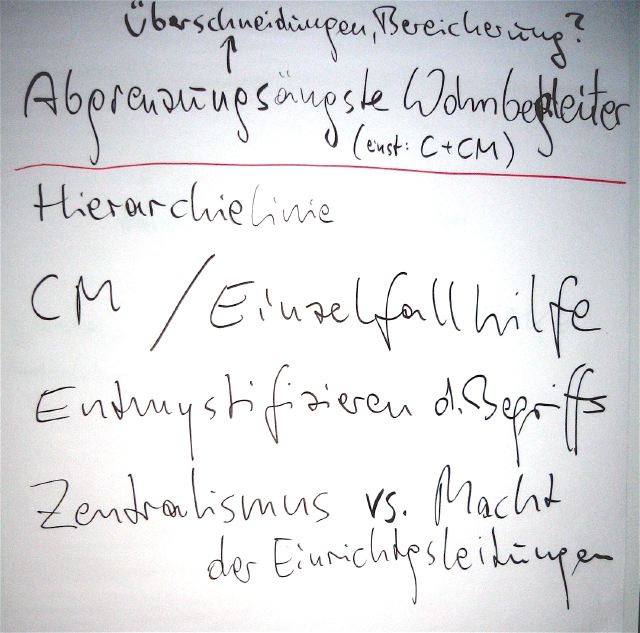 Überschneidungen, Bereicherung?
Abgrenzungsängste Wohnbegleiter
(einst: C+CM)
Hierarchielinie
CM / Einzelfallhilfe
Entmystifizieren d. Begriffs
Zentralismus vs. Macht
der Einrichtgsleitungen